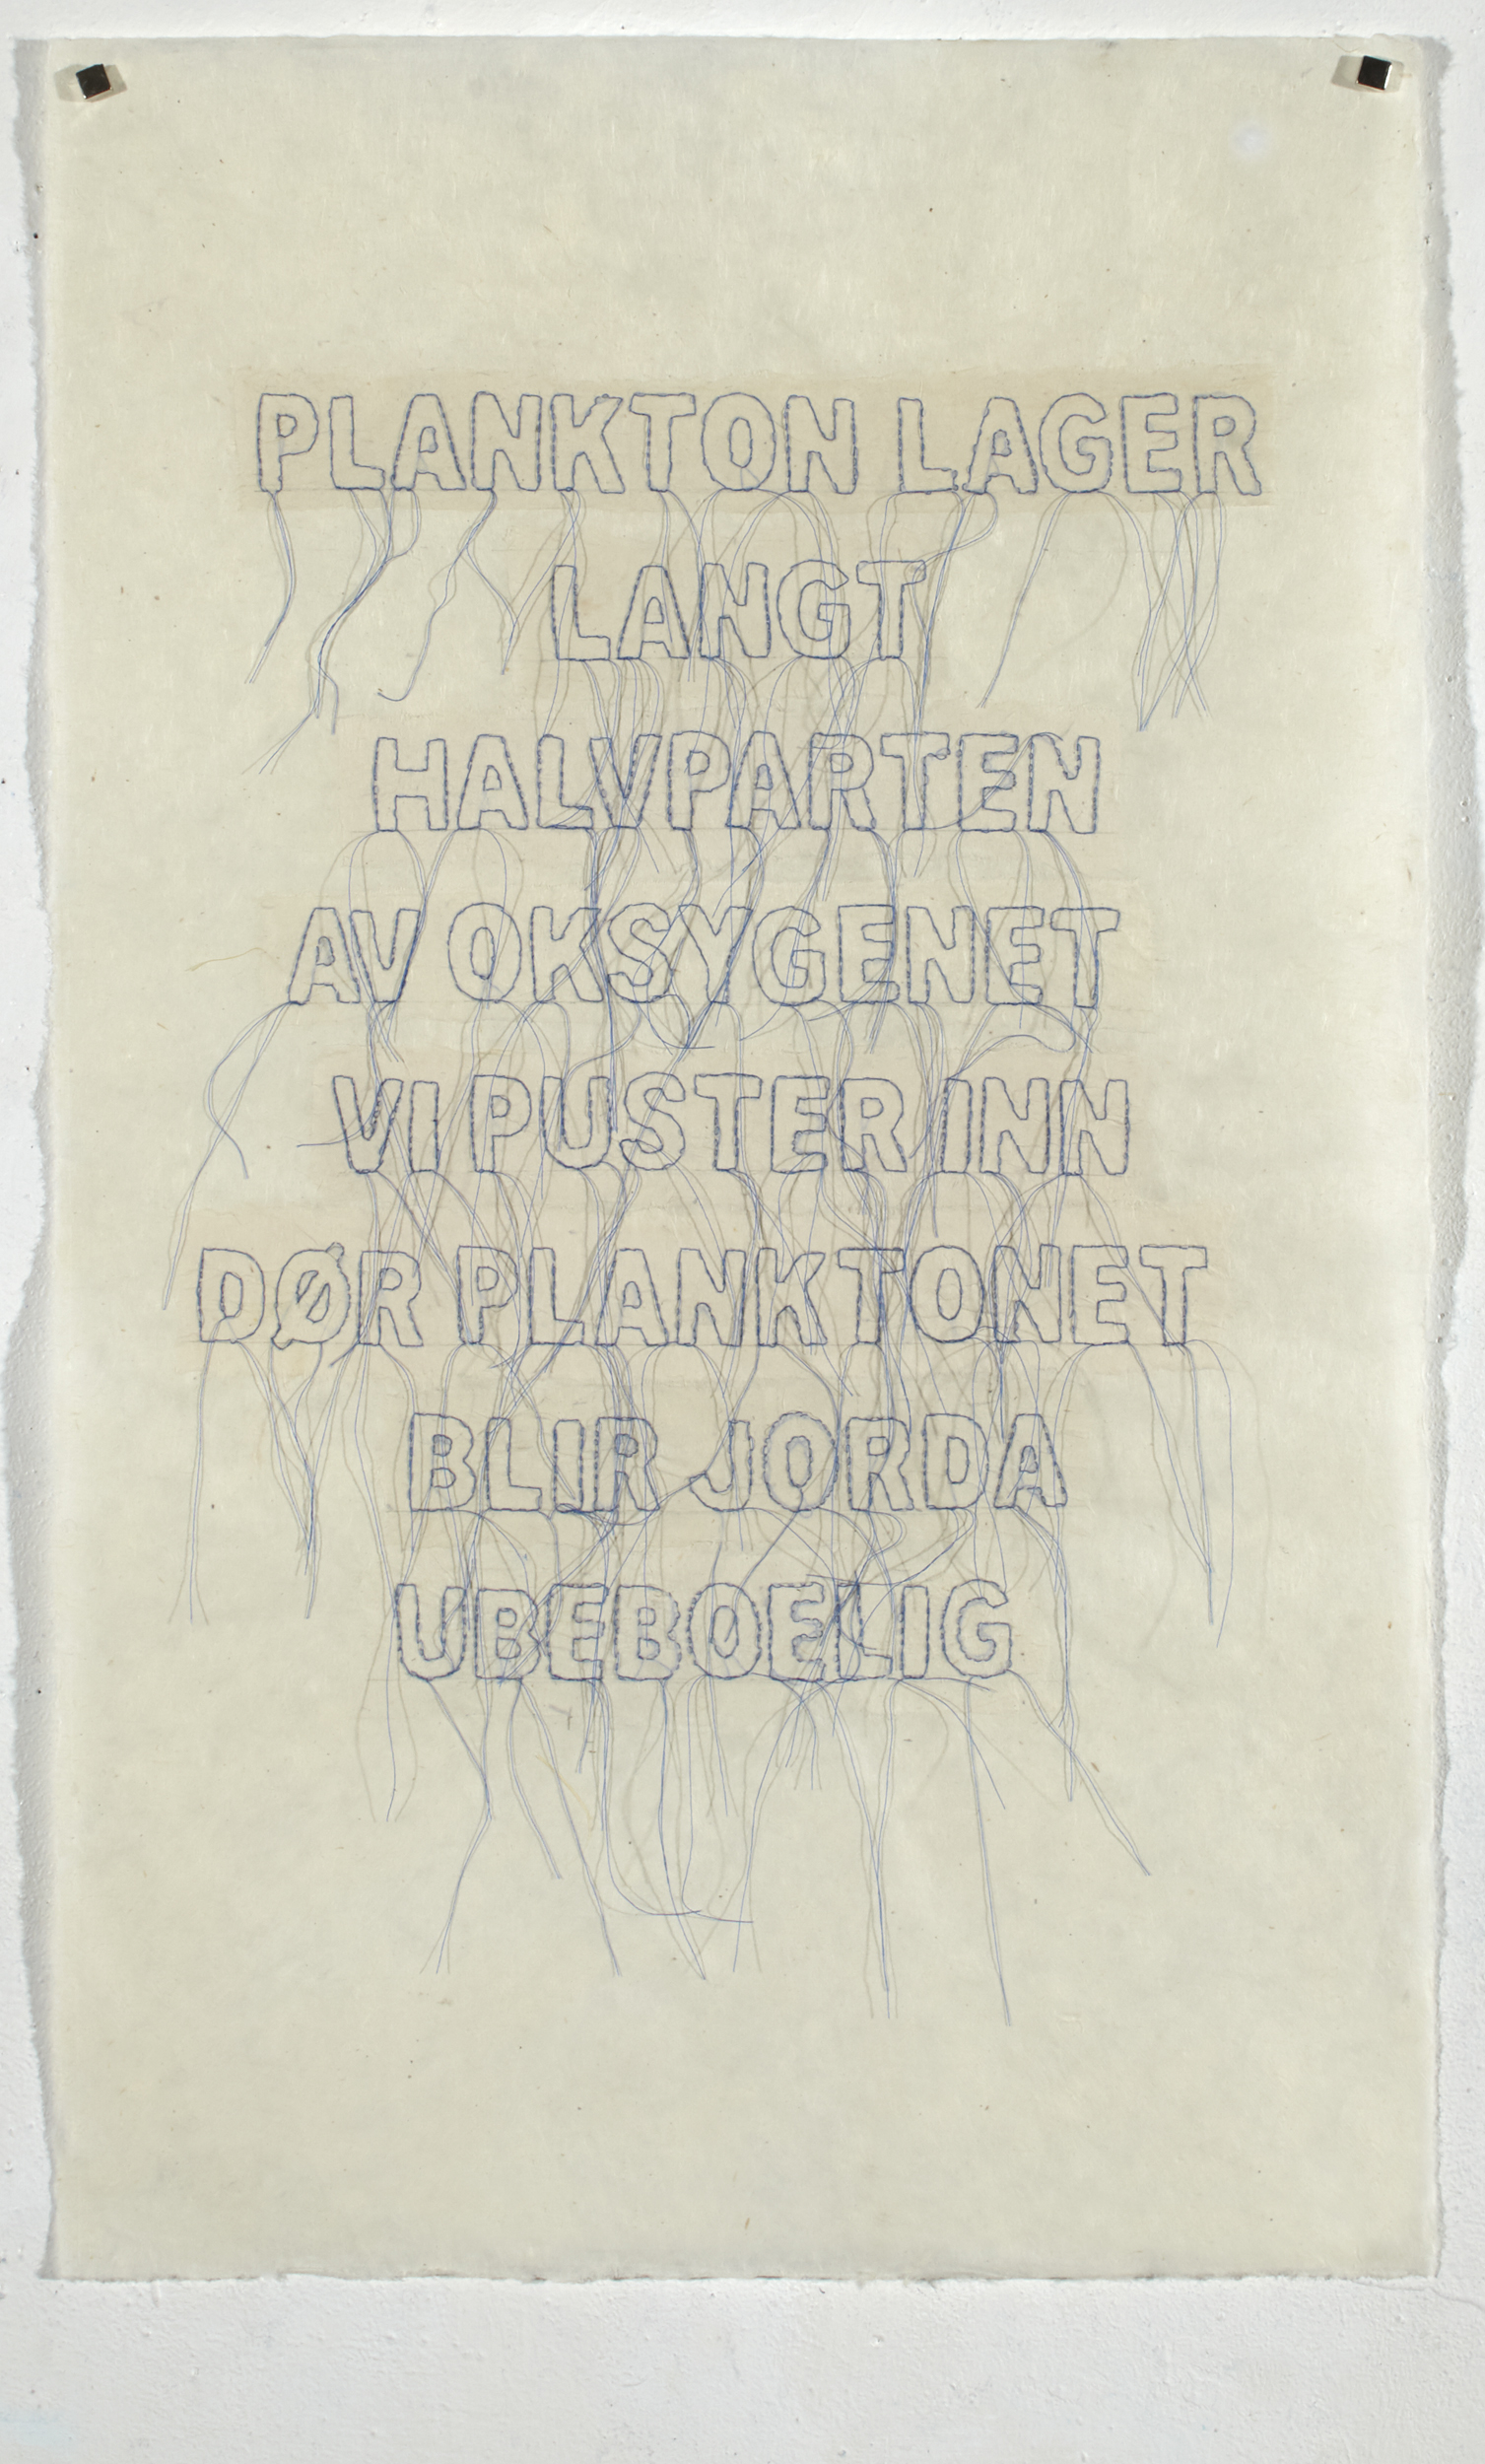 PLANKTON LAGER
LANGT
HALVPARTEN
AV OKSYGENET
VI PUSTER INN
DØR PLANKTONET
BLIR JORDA
UBEBOELIG